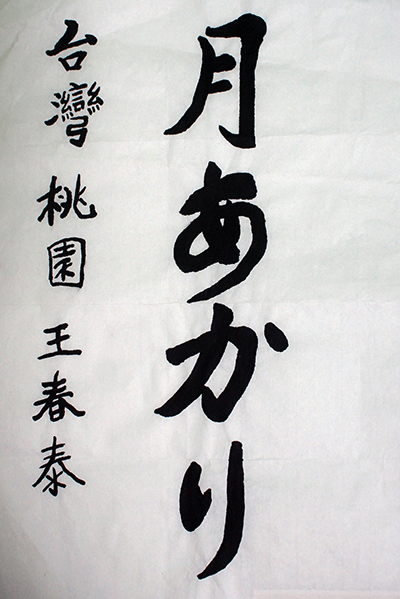 月あかり
台灣 桃園 王春泰